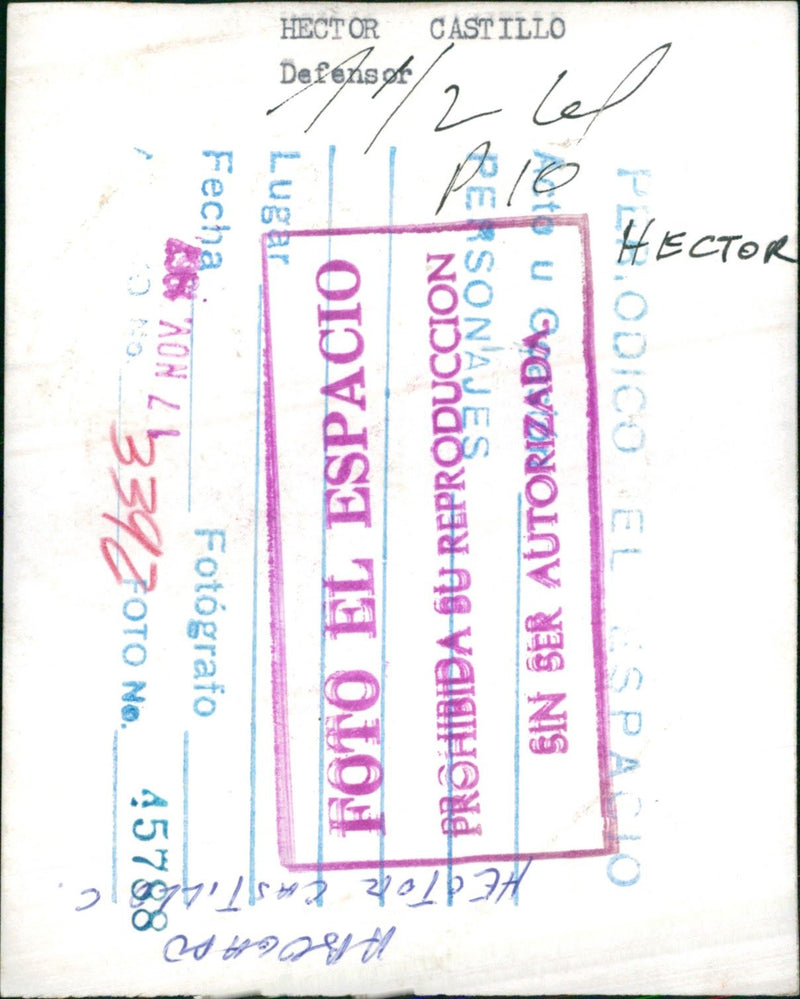 HECTOR CASTILLO
Defensor
1 1/2 Col
P. 10
HECTOR
PERIODICO EL ESPACIO
Acto u
PERSONAJES
Lugar
Fecha
NOV 71
Fotógrafo
No.
3392
FOTO No. 45788
FOTO EL ESPACIO
PROHIBIDA SU REPRODUCCION
SIN SER AUTORIZADA
HECTOR CASTILLO C.
ABOGADO